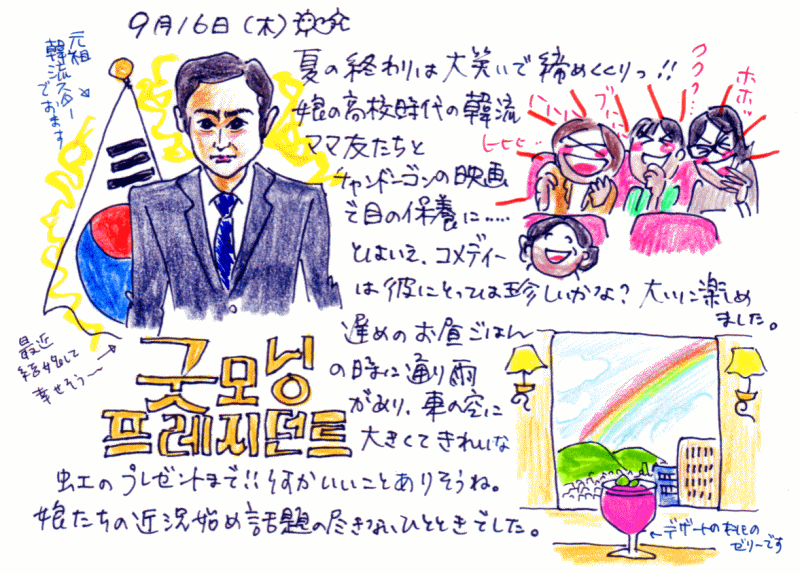 9月16日(木)
元祖
韓流スター
でおます
夏の終わりは大笑いで締めくくりっ!!
娘の高校時代の韓流
ママ友たちと
チャンドンゴンの映画
で目の保養に.....
とはいえ、コメディー
は彼にとっては珍しいかな?大いに楽しめ
ました。
ククク
ホホッ
ヒヒヒ
最近
結婚して
幸せそう〜
굿모닝
프레지던트
遅めのお昼ごはん
の時に通り雨
があり、東の空に
大きくてきれいな
虹のプレゼントまで!!何かいいことありそうね。
娘たちの近況始め話題の尽きないひとときでした。
←デザートの
ゼリーです